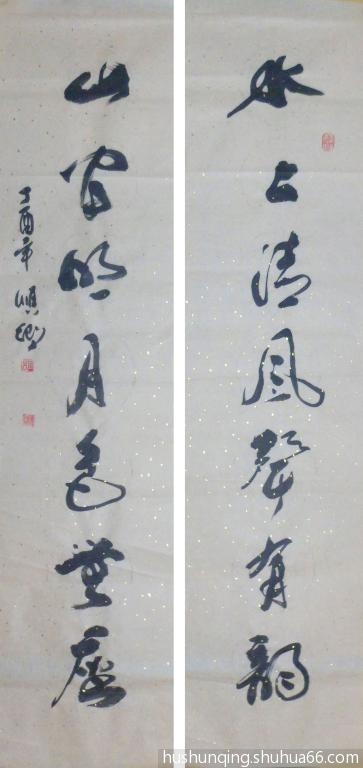 水上清風聲有韻
山間明月色無塵
丁酉年 順卿
hushunqing.shuhua66.com